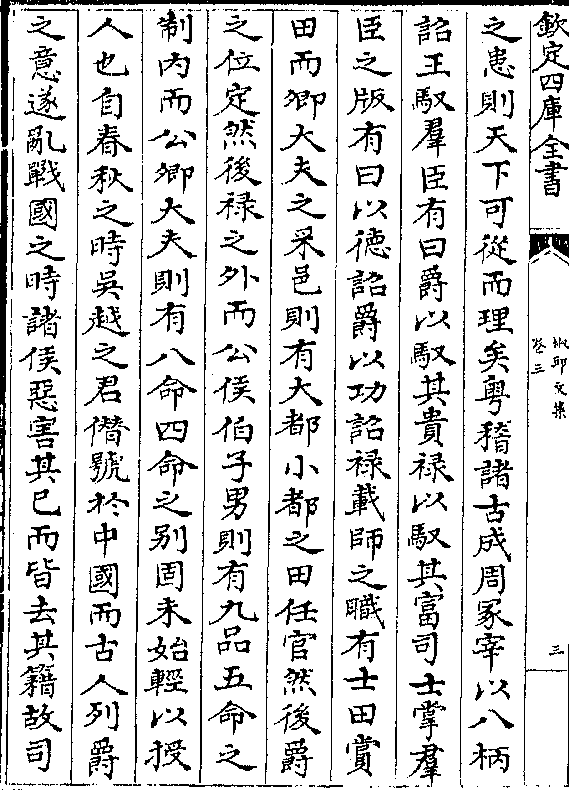 欽定四庫全書
椒邱文集
卷三
三
之患則天下可從而理矣粤稽諸古成周冢宰以八柄
詔王馭羣臣有曰爵以馭其貴禄以馭其富司士掌羣
臣之版有曰以德詔爵以功詔禄載師之職有士田賞
田而卿大夫之采邑則有大都小都之田任官然後爵
之位定然後禄之外而公侯伯子男則有九品五命之
制内而公卿大夫則有八命四命之别固未始輕以授
人也自春秋之時吳越之君僭號於中國而古人列爵
之意遂亂戰國之時諸侯惡害其已而皆去其籍故司